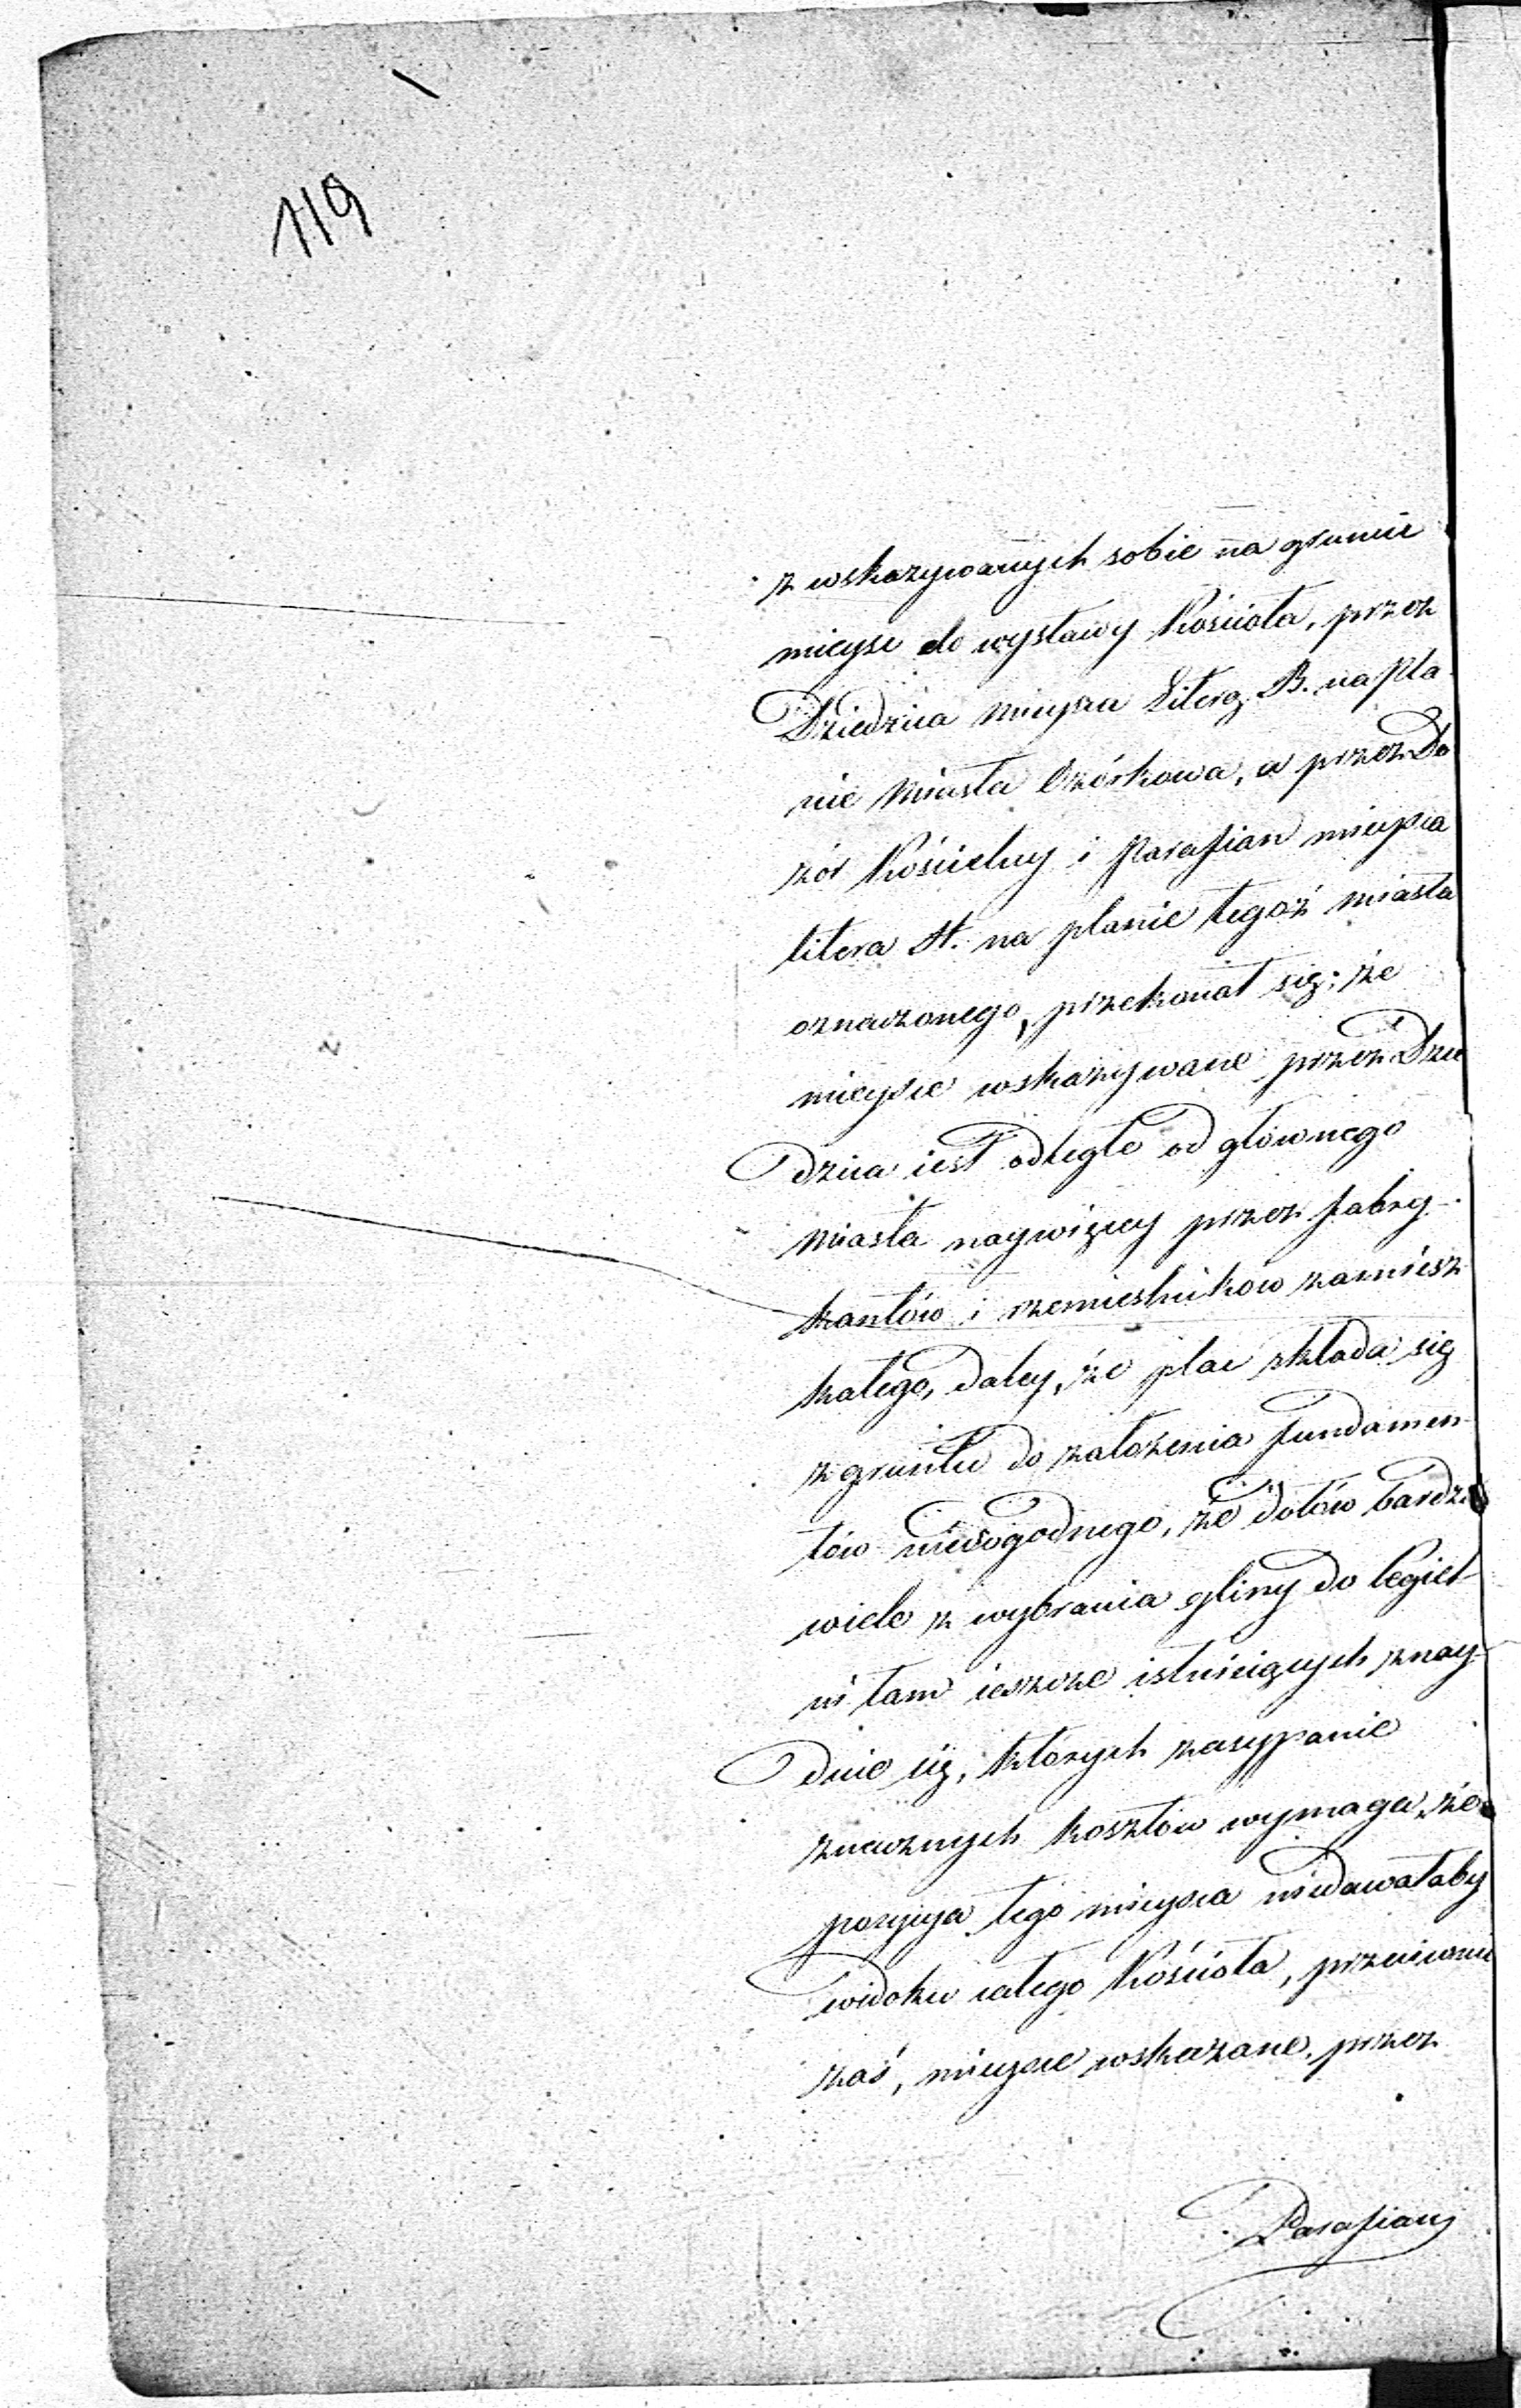 119
z wskazywanych sobie na gruncie
mieysc do wystawy Kościoła, przez
Dziedzica mieysca Literą B. na pla
nie Miasta Ozórkowa, a przez Do
zór Kościelny i Parafian mieysca
litera A. na planie tegoż miasta
oznaczonego, przekonał się; że
mieysce wskazywane przez Dzie
dzica iest odległe od głównego
Miasta naywięcy przez fabry-
kantów i rzemieslników zamiesz
kałego, daley, że plac składa się
z gruntu do założenia fundamen
tów niedogodnego, że dołów bardzo
wiele z wybrania gliny do Cegiel
ni tam ieszcze istnieiących znay-
duie się, których zasypanie
znacznych kosztów wymaga, że
pozycya tego mieysca niedawałaby
widoku całego Kościoła, przeciwnie
zaś, mieysce wskazane przez
Parafian